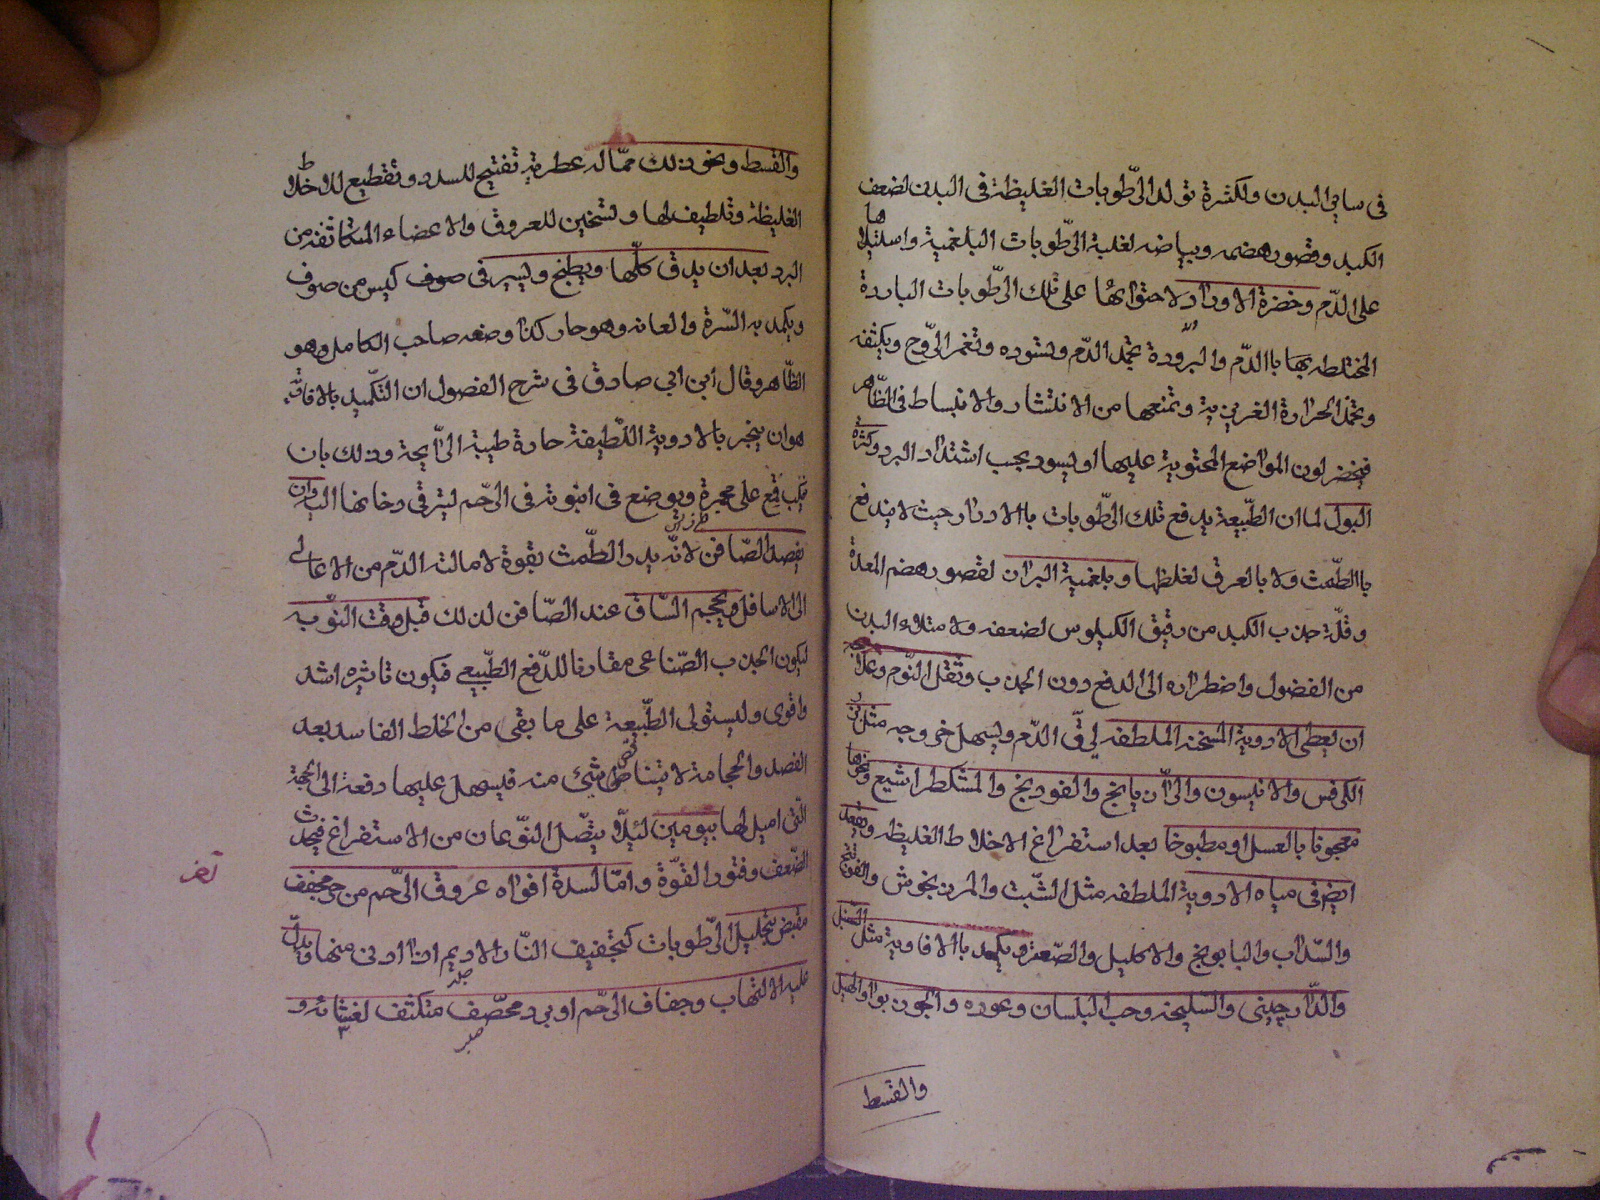 فى ساير البدن ولكثرة تولد الرّطوبات الغليظة فى البدن لضعف
الكبد وقصور هضمه وبياضه لغلبة الرّطوبات البلغمية واستيلائها
على الدّم وخضرة الاوراد لاحتوائها على تلك الرّطوبات الباردة
المختلطه بها باالدّم والبرودة تجمد الدّم وتسوده وتغمر الرّوح ويكثفه
وتخمد الحرارة الغريزية وتمنعها من الانتشار والانبساط فى الظّاهر
فيخضر لون المواضع المحتوية عليها او يسود بحسب اشتداد البرد وكثرة
البول لما ان الطّبيعة يدفع تلك الرّطوبات باالادرار حيث لا يندفع
باالطّمث ولا بالعرق لغلظها وبلغمية البراز لقصور هضم المعدة
وقلّة جذب الكبد من رقيق الكيلوس لضعفه ولامتلاء البدن
من الفضول واضطراره الى الدفع دون الجذب وثقل النّوم وعلاجه
ان يعطى الادوية المسخنه الملطفه ليرقّ الدّم ويسهل خروجه مثل بزر
الكرفس والانيسون والرّازيانج والفودنج والمشكطرامشيع ونحوها
معجونا بالعسل او مطبوخا بعد استفراغ الاخلاط الغليظه ويقعد
ايضا فى مياه الادوية الملطفه مثل الشّبت والمرزنجوش والفوتنج
والسّداب والبابونج والاكليل والصّعتر ويكمد باالافاوية مثل السّنبل
والدّارچينى والسليخه وحب البلسان وعوده والجوزبوا والهيل
والقسط
والقسط ونحو ذلك ممّا له عطرية تفتيح للسدد وتقطيع للاخلاط
الغليظة وتلطيف لها وتسخين للعروق والاعضاء المتكاثفه من
البرد بعد ان يدق كلّها ويطبخ ويسير فى صوف كيس من صوف
ويكمد به السّرة والعانه وهو حار كذا وصفه صاحب الكامل وهو
الظّاهر وقال ابن ابى صادق فى شرح الفصول ان التكميد بالافاويه
هو ان يبخر بالادوية اللّطيفة حارة طيبة الرّايحة وذلك بان
يكب قمع على مجمرة ويوضع فى انبوبه فى الرّحم ليترقى دخانها اليه وان
يفصد الصّافن لانّه يدر الطّمث بقوة لامالته الدّم من الاعالى
الى الاسافل ويحجم السّاق عند الصّافن لذلك قبل وقت النّوبه
ليكون الجذب الصّناعى مقارنا للدّفع الطّبيعى فيكون تاثيره اشد
واقوى وليستولى الطّبيعة على ما بقى من الخلط الفاسد بعد
الفصد والحجامة لا يتناقص شئ منه فيسهل عليها دفعه الى الجهة
الّتى اميل لها بيومين لئلّا يتّصل النّوعان من الاستفراغ فيحدث
الضّعف وفتور القوّة وامّا لسدة افواه عروق الرّحم من حر مجفف
مقبض بتحليل الرّطوبات كتجفيف النّار الاديم اذا ادنى منها ويدلّ
عليه الالتهاب وجفاف الرّحم او برد محصّف متكثف لغشائه و